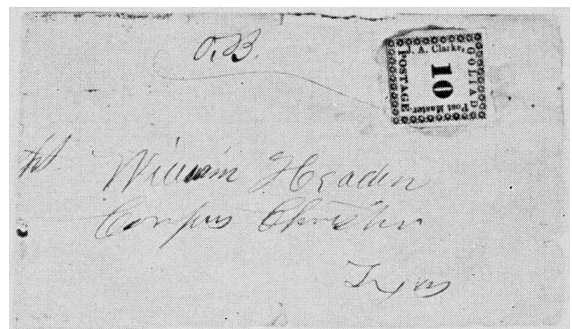 O.B.
J. A. Clarke,
GOLIAD
10
POSTAGE
Post Master
William Headen
Corpus Christi
Texas